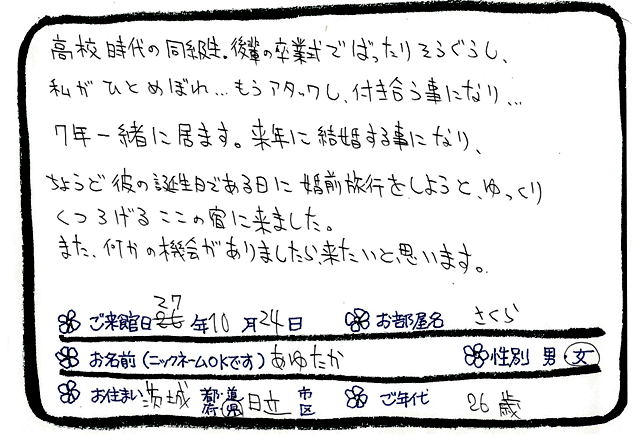 高校時代の同級生。後輩の卒業式でばったりそうぐうし、
私がひとめぼれ…もうアタックし、付き合う事になり…
7年一緒に居ます。来年に結婚する事になり、
ちょうど彼の誕生日である日に婚前旅行をしようと、ゆっくり
くつろげるここの宿に来ました。
また、何かの機会がありましたら、来たいと思います。
27
ご来館日 26 年10月24日 お部屋名 さくら
お名前(ニックネームOKです) あゆたか 性別 男 女
お住まい 茨城 都・道府・県 日立 市区 ご年代 26歳